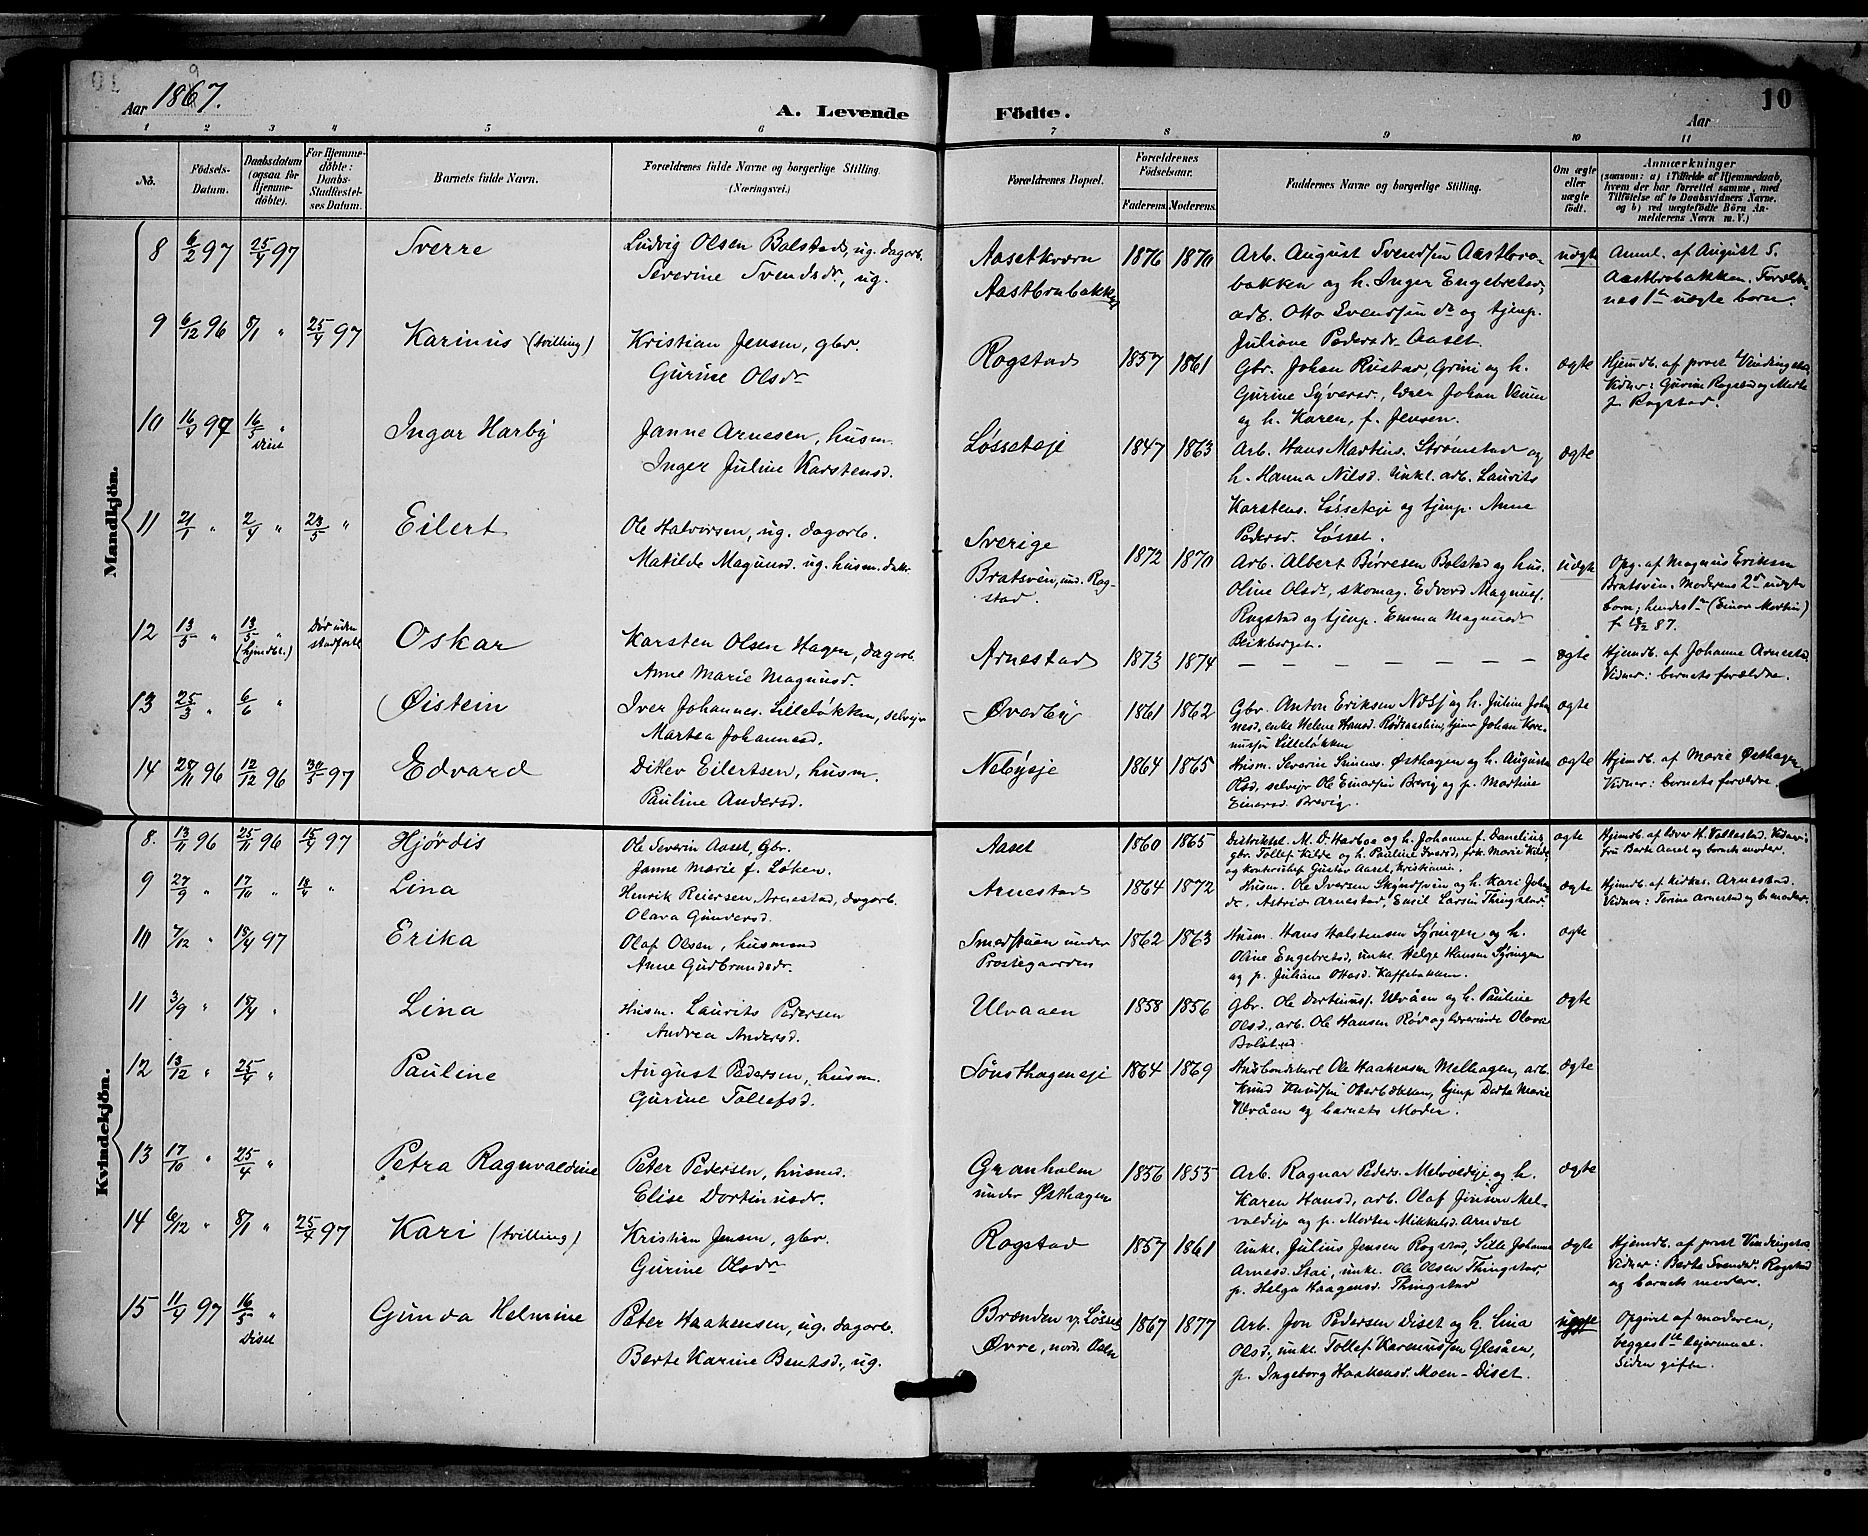 Aar 1867. 9
A. Levende
Födte.
Aar
10
1 2 3 4 5 6 7 8 9 10 11
No.
Födsels-Datum.
Daabsdatum (ogsaa for Hjemme-döbte).
For Hjemme-döbte: Daabs-Stadfæstel-ses Datum.
Barnets fulde Navn.
Forældrenes fulde Navne og borgerlige Stilling. (Næringsvei.)
Forældrenes Bopæl.
Forældrenes Födselsaar.
Faderens. Moderens.
Faddernes Navne og borgerlige Stilling.
Om ægte eller uægte födt.
Anmærkninger
(saasom: a) i Tilfælde af Hjemmedaab, hvem der har forrettet samme, med Tilföielse af to Daabsvidners Navne, og b) ved uægtefödte Börn An-melderens Navn m. V.)
Mandkjön.
8 6/2 97 25/4 97 Sverre Ludvig Olsen Bolstad, ug. dagarb.
Severine Svendsdr., ug.
Aasetkværn
Aastbrubakken
1876 1870
Arb. August Svendsen Aastbro-
bakken og h. Inger Engebretsd,
arb. Otto Svendsen do og tjenp.
Juliane Pedersdr. Aaset.
uægte
Anml. af August S.
Aastbrobakken. Foræld-
nes 1te uægte barn.
9 6/12 96 8/1 " 25/4 97 Karinus (tvilling) Kristian Jensen, gbr.
Gurine Olsdr
Rogstad 1857 1861
Gbr. Johan Rustad, Grini og h.
Gurine Syversd.,
og h. Karen, f. Jensen.
ægte
Hjemdb. af prost Vindingstad
Vidner: Gurine Rogstad og Marthe
Rogstad.
10 97 16/5 " Diset Ingar Harby Janne Arnesen, husm.
Inger Juline Karstensd.
Løsseteje 1847 1863
Arb. Hans Martins. Strømstad og
h. Hanna Nilsd. Unkl. arb. Laurits
Karstens. Løsseteje og tjenp. Anne
Pedersd. Løsset.
ægte
11 21/1 " 2/4 " 23/5 " Eilert Ole Halvorsen, ug. dagarb.
Matilde Magnusd. ug. husm. datr.
Sverige
Bratsven, und. Rog-
stad.
1872 1870
Arb. Albert Børresen Bolstad og hus.
Oline Olsdr, skomag. Edvard Magnus.
Rogstad og tjenp. Emma Magnusdr
Blikberget.
uægte
Opg. af Magnus Eriksen
Bratsven. Moderens 2det uægte
barn; hendes 1te (Einar Martin)
f. 87.
12 13/5 " 13/5 " (hjemdbt.) Død uden stadfæst. Oskar Karsten Olsen Hagen, dagarb.
Anne Marie Magnusd.
Arnestad 1873 1874
— — — — — — —
ægte
Hjemdb. af Johanne Arnestad
Vidner: barnets forældre.
13 25/3 " 6/6 " Øistein Iver Johannes. Lilleløkken, selvejer
Martea Johannesd.
Øverby 1861 1862
Gbr. Anton Eriksen Næss og h. Juline Joha-
nesd, enke Helene Hansd. Rødsaasen, tjener Johan Kare-
nusen Lilleløkken
ægte
14 96 12/12 96 30/5 97 Edvard Ditlev Eilertsen, husm.
Pauline Andersd.
Nebyeje 1864 1865
Husm. Severin Simens. Østhagen og h. Augusta
Olsd, selvejer Ole Einarsen Brevig og p. Martine
Einarsd. Brevig.
ægte
Hjemdb. af Marie Østhagen
Vidner: barnets forældre.
Kvindekjön.
8. 13/11 96 25/11 96 15/4 97 Hjørdis Ole Severin Aaset, Gbr.
Janne Marie f. Løken.
Aaset 1860 1865
Distriktsl. M. D. Harboe og h. Johanne f. Danelius
gbr. Tollef Kilde og h. Pauline Iversd, frk. Marie Kilde
og kontorchef Gustav Aaset, Kristiania.
ægte
Hjemdb. af lærer H. Vollestad. Vidner:
fru Berte Aaset og barnets moder.
9 27/9 " 17/10 " 18/4 " Lina Henrik Reiersen Arnestad, dagarb.
Olava Gundersd.
Arnestad 1864 1872
Husm. Ole Iversen Skyndsven og h. Kari Johan
dr, Astrid Arnestad, Ensil Larsen Thingstad.
ægte
Hjemdb. af kirkes. Arnestad.
Vidner: Terine Arnestad og b. moder.
10 7/12 " 18/4 97 Erika Olaf Olsen, husmand
Anne Gudbrandsdr.
Smedstuen under
Prostegaarden
1862 1863
Husm. Hans Halstensen Syringen og h.
Oline Engebretsd, unkl. Helge Hansen Syringen
og p. Juliane Ottosd. Kaffebakken.
ægte
11 3/9 " 18/4 " Lina Husm. Laurits Pedersen
Andrea Andersd.
Ulvaaen 1858 1856
gbr. Ole Dortinus. Ulvåen og h. Pauline
Olsd., arb. Ole Hansen Rød og lærerinde Olava
Bolstad.
ægte
12 13/12 " 25/4 " Pauline August Pedersen, husm.
Gurine Tollefsd.
Sønsthageneje 1864 1869
Husbondskarl Ole Haakensen Melhagen, arb.
Knud Knudsen Otterbækken, tjenp Dorte Marie
Ulvåen og barnets Moder.
ægte
13 17/10 " 25/4 " Petra Ragnvaldine Peter Pedersen, husmd.
Elise Dortinusdr.
Granholm
under Østhagen
1856 1855
Arb. Ragnar Peders. Melvoldeje og h.
Karen Hansd, arb. Olaf Jensen Mel-
voldeje og p. Morten Mikkelsd. Arndal
ægte
14 6/12 " 8/1 " 25/4 97 Kari (tvilling) Kristian Jensen, gbr.
Gurine Olsdr
Rogstad 1857 1861
Unkl. Julius Jensen Rogstad, Sille Johanne
Arnesd. Stai, unkl. Ole Olsen Thingstad,
p. Helga Haagensd. Thingstad
ægte
Hjemdb. af prest Vindingstad
Vidner: Berte Svendsd. Rogstad
og barnets moder.
15 11/4 97 16/5 " Diset Gunda Helmine Peter Haakensen, ug. dagarb.
Berte Karine Bentsd., ug.
Brænden v. Løsset
Øvre, nord. Osen
1867 1877
Arb. Jon Pedersen Diset og h. Lina
Olsd., unkl. Tollef Karenussen Glesåen,
p. Ingeborg Haakensd. Moen-Diset.
uægte
Opgivet af moderen;
begges 1ste lejermaal.
Siden gifte.